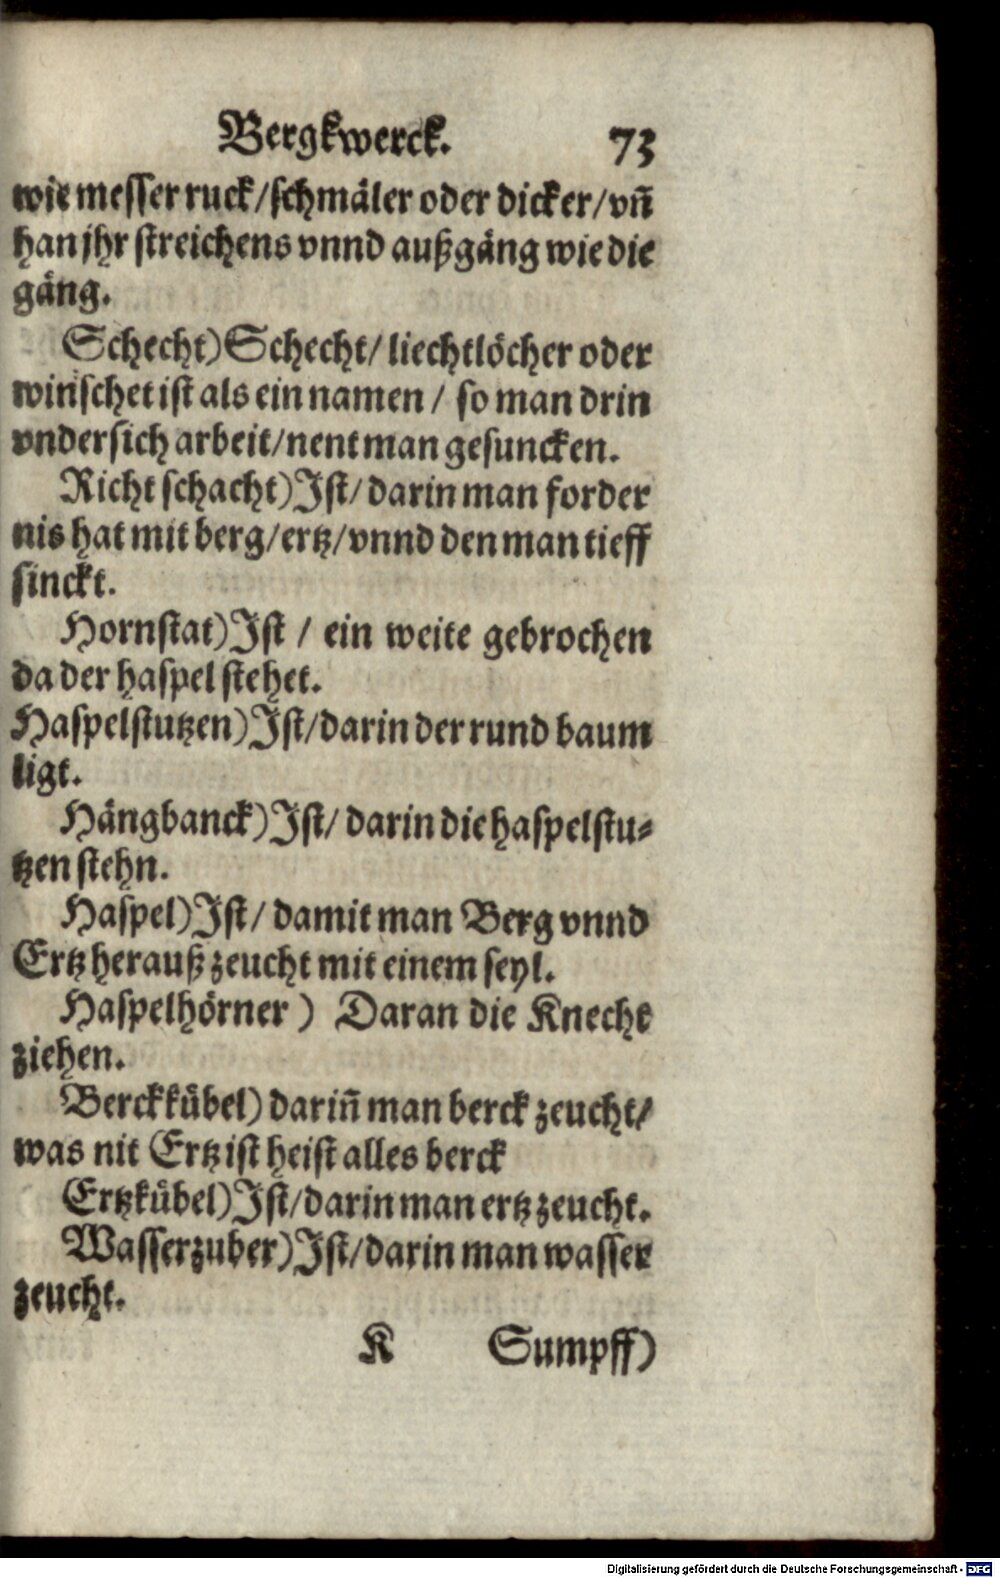 Bergkwerck. 73
wie messer ruck/schmäler oder dicker/vñ
han jhr streichens vnnd außgäng wie die
gäng.
Schecht) Schecht/ liechtlöcher oder
winschet ist als ein namen / so man drin
vndersich arbeit/nent man gesuncken.
Richt schacht) Ist/ darin man forder
nis hat mit berg/ertz/vnnd den man tieff
sinckt.
Hornstat) Ist / ein weite gebrochen
da der haspel stehet.
Haspelstutzen) Ist/darin der rund baum
ligt.
Hängbanck) Ist/ darin die haspelstu-
tzen stehn.
Haspel) Ist/ damit man Berg vnnd
Ertz herauß zeucht mit einem seyl.
Haspelhörner ) Daran die Knecht
ziehen.
Berckkübel) dariñ man berck zeucht/
was nit Ertz ist heist alles berck
Ertzkübel) Ist/darin man ertz zeucht.
Wasserzuber) Ist/darin man wasser
zeucht.
K Sumpff)
Digitalisierung gefördert durch die Deutsche Forschungsgemeinschaft - DFG